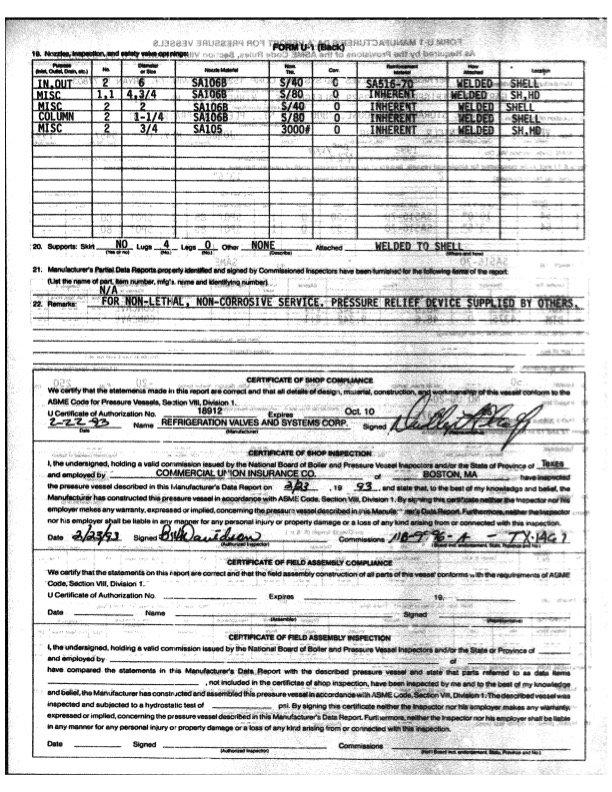 FORM U-1 (Back)
19. Nozzles, inspection, and safety valve openings:
Purpose (Inlet, Outlet, Drain, etc.) No. Diameter or Size Nozzle Material Nom. Thk. Corr. Reinforcement Material How Attached Location
IN,OUT 2 6 SA106B S/40 0 SA516-70 WELDED SHELL
MISC 1,1 4,3/4 SA106B S/80 0 INHERENT WELDED SH,HD
MISC 2 2 SA106B S/40 0 INHERENT WELDED SHELL
COLUMN 2 1-1/4 SA106B S/80 0 INHERENT WELDED SHELL
MISC 2 3/4 SA105 3000# 0 INHERENT WELDED SH,HD
20. Supports: Skirt NO Lugs 4 Legs 0 Other NONE Attached WELDED TO SHELL
(Yes or no) (No.) (No.) (Describe) (Where and how)
21. Manufacturer's Partial Data Reports properly identified and signed by Commissioned Inspectors have been furnished for the following items of the report:
(List the name of part, item number, mfg's. name and identifying number)
N/A
22. Remarks: FOR NON-LETHAL, NON-CORROSIVE SERVICE. PRESSURE RELIEF DEVICE SUPPLIED BY OTHERS.
CERTIFICATE OF SHOP COMPLIANCE
We certify that the statements made in this report are correct and that all details of design, material, construction, and workmanship of this vessel conform to the
ASME Code for Pressure Vessels, Section VIII, Division 1.
U Certificate of Authorization No. 18912 Expires Oct. 10
2-22-93 Name REFRIGERATION VALVES AND SYSTEMS CORP. Signed
Date (Manufacturer)
CERTIFICATE OF SHOP INSPECTION
I, the undersigned, holding a valid commission issued by the National Board of Boiler and Pressure Vessel Inspectors and/or the State or Province of Texas
and employed by COMMERCIAL UNION INSURANCE CO. BOSTON, MA have inspected
the pressure vessel described in this Manufacturer's Data Report on 2/23, 19 93, and state that, to the best of my knowledge and belief, the
Manufacturer has constructed this pressure vessel in accordance with ASME Code, Section VIII, Division 1. By signing this certificate neither the Inspector nor his
employer makes any warranty, expressed or implied, concerning the pressure vessel described in this Manufacturer's Data Report. Furthermore, neither the Inspector
nor his employer shall be liable in any manner for any personal injury or property damage or a loss of any kind arising from or connected with this inspection.
Date 2/23/93 Signed Commissions NB-9 - TX
(Authorized Inspector)
CERTIFICATE OF FIELD ASSEMBLY COMPLIANCE
We certify that the statements on this report are correct and that the field assembly construction of all parts of this vessel conforms with the requirements of ASME
Code, Section VIII, Division 1.
U Certificate of Authorization No. Expires 19
Date Name Signed
(Assembler)
CERTIFICATE OF FIELD ASSEMBLY INSPECTION
I, the undersigned, holding a valid commission issued by the National Board of Boiler and Pressure Vessel Inspectors and/or the State or Province of
and employed by of
have compared the statements in this Manufacturer's Data Report with the described pressure vessel and state that parts referred to as data items
, not included in the certificate of shop inspection, have been inspected by me and to the best of my knowledge
and belief, the Manufacturer has constructed and assembled this pressure vessel in accordance with ASME Code, Section VIII, Division 1. The described vessel was
inspected and subjected to a hydrostatic test of psi. By signing this certificate neither the Inspector nor his employer makes any warranty,
expressed or implied, concerning the pressure vessel described in this Manufacturer's Data Report. Furthermore, neither the Inspector nor his employer shall be liable
in any manner for any personal injury or property damage or a loss of any kind arising from or connected with this inspection.
Date Signed Commissions
(Authorized Inspector) (Nat'l Board incl. endorsement, State, Province and No.)